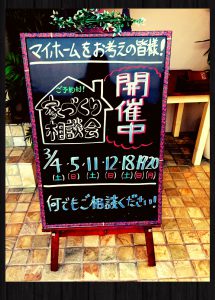 マイホームをお考えの皆様!
ご予約付!
家づくり
相談会
開催中
3/4・5・11・12・18・19・20
(土)(日)(土)(日)(土)(日)(月)
何でもご相談ください!